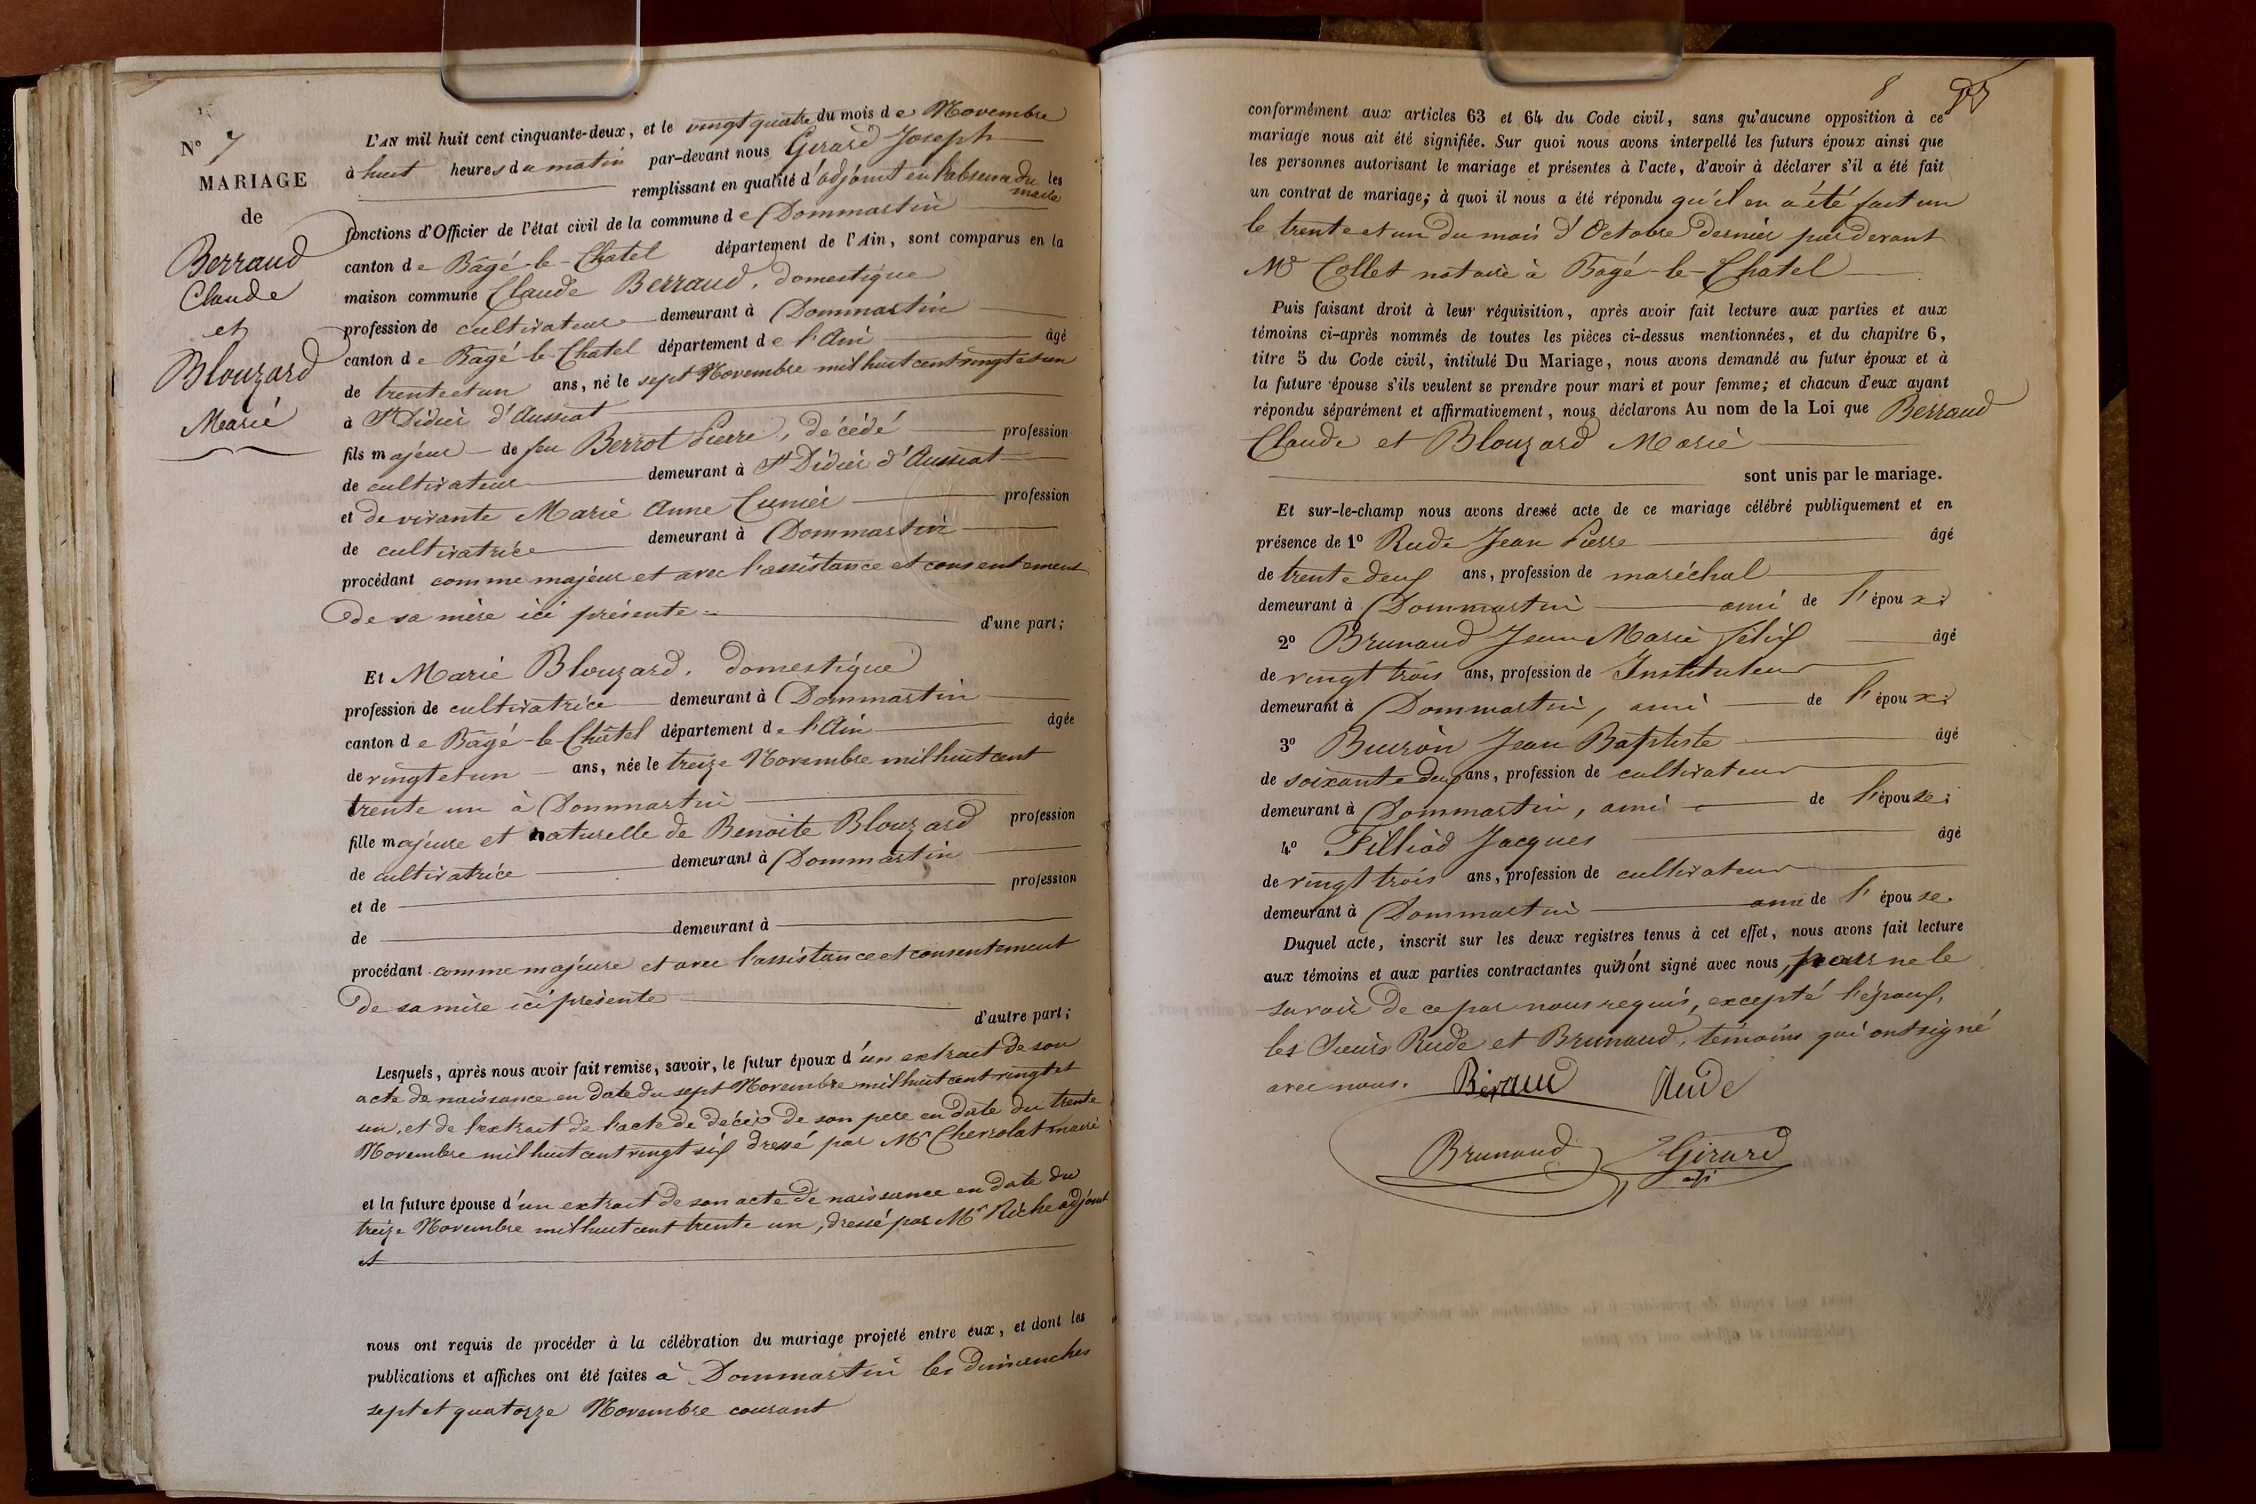 N° 7
MARIAGE
de
Berraud
Claude
et
Blouzard
Marie
L'AN mil huit cent cinquante-deux, et le vingt quatre du mois de Novembre
à huit heures du matin par-devant nous Girard Joseph
remplissant en qualité d'adjoint en l'absence du maire les
fonctions d'Officier de l'état civil de la commune de Dommartin
canton de Bâgé-le-Chatel département de l'Ain, sont comparus en la
maison commune Claude Berraud, domestique
profession de cultivateur demeurant à Dommartin
canton de Bagé-le-Chatel département de l'Ain âgé
de trente et un ans, né le sept Novembre mil huit cent vingt et un
à St Didier d'Aussiat
fils majeur de feu Berrot Pierre, décédé profession
de cultivateur demeurant à St Didier d'Aussiat
et de vivante Marie Anne Cunier profession
de cultivatrice demeurant à Dommartin
procédant comme majeur et avec l'assistance et consentement
de sa mère ici présente d'une part;
Et Marie Blouzard, domestique
profession de cultivatrice demeurant à Dommartin
canton de Bagé-le-Châtel département de l'Ain âgée
de vingt et un ans, née le treize Novembre mil huit cent
trente un à Dommartin
fille majeure et naturelle de Benoite Blouzard profession
de cultivatrice demeurant à Dommartin
et de profession
de demeurant à
procédant comme majeure et avec l'assistance et consentement
de sa mère ici présente
d'autre part;
Lesquels, après nous avoir fait remise, savoir, le futur époux d'un extrait de son
acte de naissance en date du sept Novembre mil huit cent vingt et
un, et de l'extrait de l'acte de décès de son père en date du trente
Novembre mil huit cent vingt six dressé par Mr Chervolat maire
et la future épouse d'un extrait de son acte de naissance en date du
treize Novembre mil huit cent trente un, dressé par Mr Riche adjoint
et
nous ont requis de procéder à la célébration du mariage projeté entre eux, et dont les
publications et affiches ont été faites à Dommartin les dimanches
sept et quatorze Novembre courant
8
conformément aux articles 63 et 64 du Code civil, sans qu'aucune opposition à ce
mariage nous ait été signifiée. Sur quoi nous avons interpellé les futurs époux ainsi que
les personnes autorisant le mariage et présentes à l'acte, d'avoir à déclarer s'il a été fait
un contrat de mariage; à quoi il nous a été répondu qu'il en a été fait un
le trente et un du mois d'Octobre dernier par devant
Me Collet notaire à Bagé-le-Chatel
Puis faisant droit à leur réquisition, après avoir fait lecture aux parties et aux
témoins ci-après nommés de toutes les pièces ci-dessus mentionnées, et du chapitre 6,
titre 5 du Code civil, intitulé Du Mariage, nous avons demandé au futur époux et à
la future épouse s'ils veulent se prendre pour mari et pour femme; et chacun d'eux ayant
répondu séparément et affirmativement, nous déclarons Au nom de la Loi que Berraud
Claude et Blouzard Marie
sont unis par le mariage.
Et sur-le-champ nous avons dressé acte de ce mariage célébré publiquement et en
présence de 1° Rude Jean Pierre âgé
de trente deux ans, profession de maréchal
demeurant à Dommartin ami de l'époux;
2° Brunaud Jean Marie Félix âgé
de vingt trois ans, profession de Instituteur
demeurant à Dommartin, ami de l'époux;
3° Buiron Jean Baptiste âgé
de soixante deux ans, profession de cultivateur
demeurant à Dommartin, ami de l'épouse;
4° Filliod Jacques âgé
de vingt trois ans, profession de cultivateur
demeurant à Dommartin ami de l'épouse.
Duquel acte, inscrit sur les deux registres tenus à cet effet, nous avons fait lecture
aux témoins et aux parties contractantes qui n'ont signé avec nous, pour ne le
savoir de ce par nous requis, excepté l'époux,
les Sieurs Rude et Brunaud, témoins qui ont signé
avec nous. Béraud Rude
Brunaud JGirard
adj